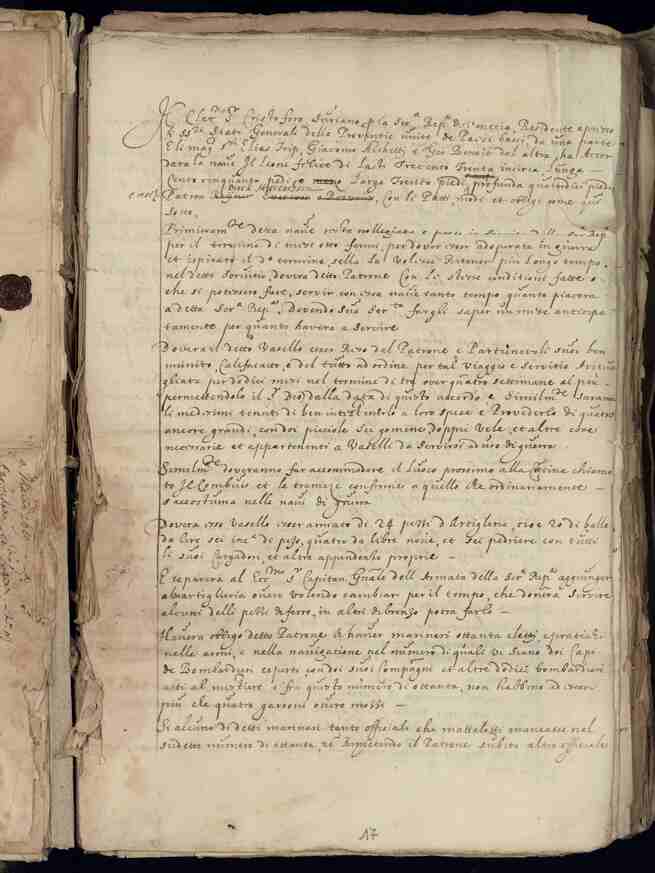 Il Clar.mo S.r Cristoforo Suriano p la Ser.a Rep.a di Venecia, Residente apresso
li SS.ri Stati Generali delle Provintie unite de Paesi bassi, da una parte
E li mag.ci S.ri Elias Trip, Giacomo
data la nave Il Leone felice di Lasti Trecento Trenta incirca Lunga
Cento cinquanta piedi Larga Trenta piedi, profunda quatordici piedi
Patron con li Patti, modi et oblighi come qui
sotto.
Primieram.te detta nave
per il termine di mesi otto fermi, per dover esser adoperata in guerra
et ispirato il d.o termine, se la volesse Ritener più longo tempo,
nel detto servitio, doverà detto Patrone Con li stesse conditioni fatte o
che si potessero fare, servir con essa nave tanto tempo, quanto piacerà
a detta Ser.ma Rep.a, Dovendo Sua Ser.tà fargli saper un mese anticipa
tamente per quanto haverà a servire
Doverà il detto Vasello esser Reso dal Patrone e Partinevoli suoi ben
munito, Calefatato, e del tutto ad ordine per tal viaggio e servitio
per dodici mesi nel termine di tre over quatro settimane al più
permettendolo il S.r Dio, dalla data di questo accordo e Similm.te saranno
li medesimi tenuti di ben a loro spese e Providerlo di quatro
ancore grandi, con doi picciole sei gomene doppii Vele, et altre cose
necessarie et appartenenti a Vaselli da servirsi ad uso di guerra.
Similm.te dovranno far accommodare il luoco prossimo alla chiama
to Il Combuis et le tramezze conforme a quelle che ordinariamente
s'accostuma nelle navi di
Doverà esso Vasello esser armato di 24 pezzi d'Artigleria, cioè 20 di balle
da lire sei inc.a di peso, quatro da libre nove, et sei petriere con tutti
li suoi Cargadori, et altre appendentie proprie
E se parerà al Ecc.mo S.r Capitan Gñale dell Armata della Ser.a Rep.a aggiunger
altra artigleria overo volendo cambiar per il tempo, che doverà servire
alcuni delli pezzi di ferro, in altri di bronzo potrà farlo
Haverà obligo detto Patrone di haver marineri ottanta eletti, e pratichi
nelle armi, e nella navigatione nel numero di quali vi siano doi Capi
de Bombardieri esperti, con doi suoi Compagni et altre dodici bombardieri
atti al mestiere e fra questo numero di ottanta, non habbino ad esser
più che quatro garzoni overo mozzi
Si alcuno di detti marinari tanto officiali che mattelotti mancasse nel
sudetto numero di ottanta, et il Patrone subito altro officiale
17